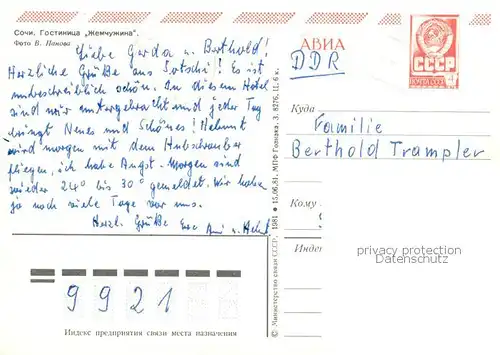 Сочи. Гостиница „Жемчужина".
Фото В. Панова
Liebe Gerda u. Berthold!
Herzliche Grüße aus Sotschi! Es ist
unbeschreiblich schön. In diesem Hotel
sind wir untergebracht und jeder Tag
bringt Neues und Schönes! Helmut
wird morgen mit dem Hubschrauber
fliegen, ich habe Angst. Morgen sind
wieder 24° bis 30° gemeldet. Wir haben
ja noch viele Tage vor uns.
Herzl. Grüße Eure
АВИА
DDR
СССР
Куда
Familie
Berthold Trampler
Кому
Индек
privacy protection
© Министерство связи СССР, 1981 ● 15.06.81. МПФ Гознака, З. 8276, Ц. 6 к.
9921
Индекс предприятия связи места назначения